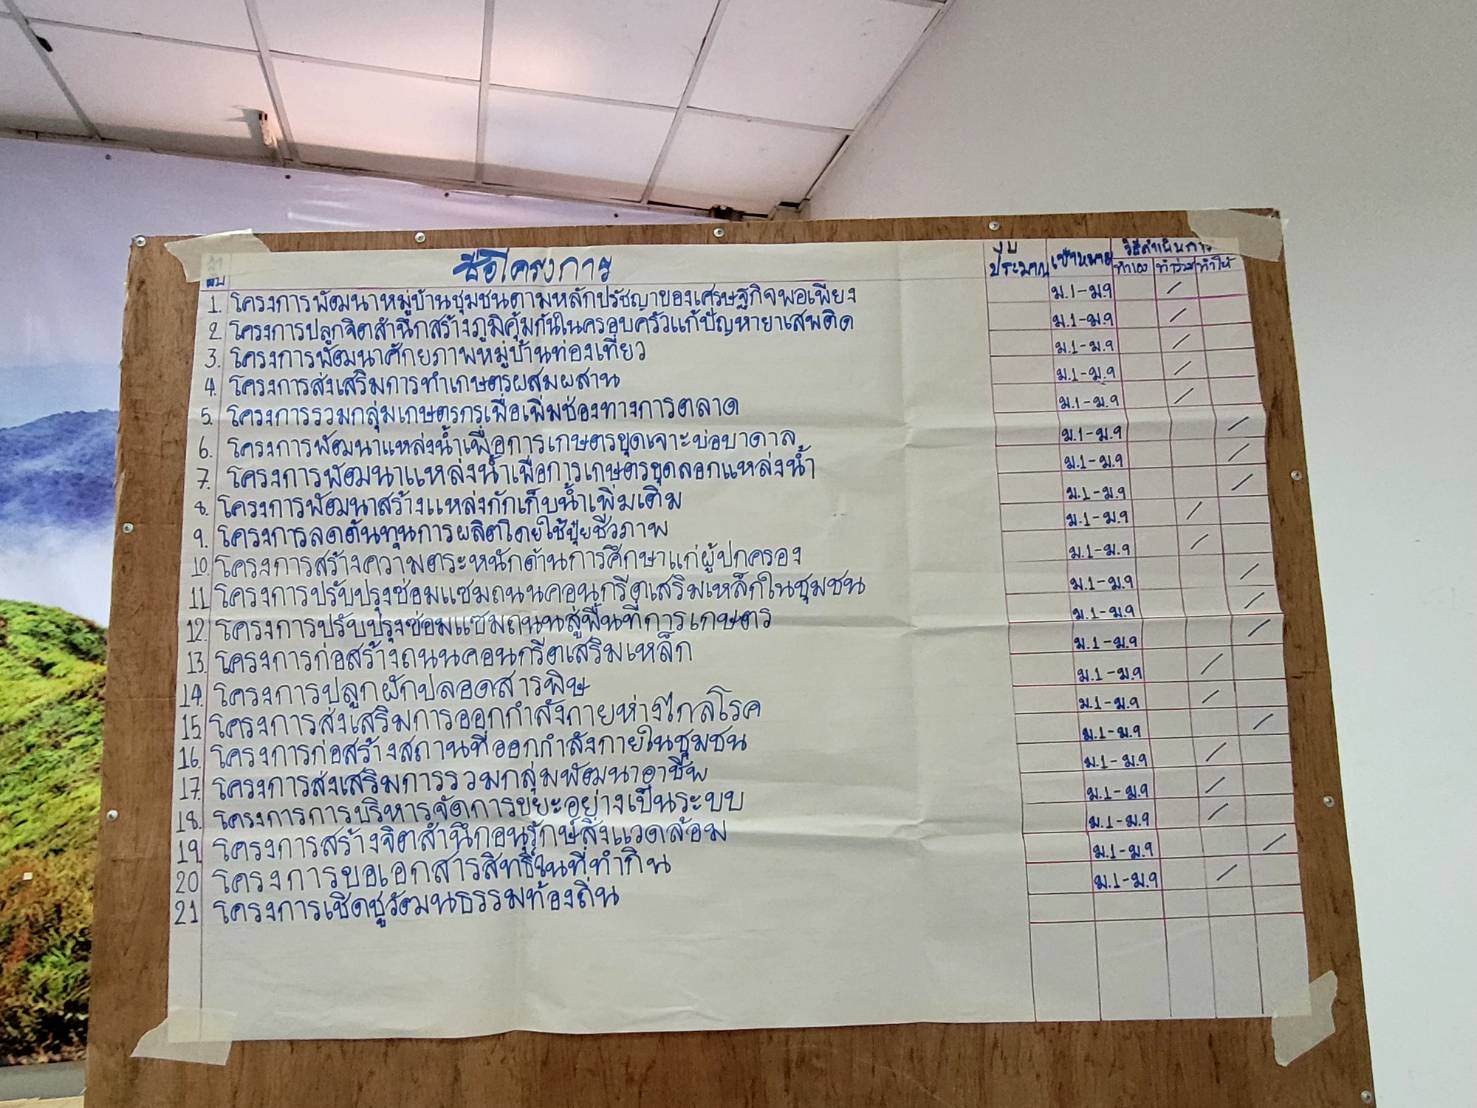 ลำดับ ชื่อโครงการ ปีงบประมาณ เป้าหมาย วิธีดำเนินการ
ทำเอง ทำร่วม ทำให้
1. โครงการพัฒนาหมู่บ้านชุมชนตามหลักปรัชญาของเศรษฐกิจพอเพียง ม.1-ม.9 /
2. โครงการปลูกจิตสำนึกสร้างภูมิคุ้มกันในครอบครัวแก้ปัญหายาเสพติด ม.1-ม.9 /
3. โครงการพัฒนาศักยภาพหมู่บ้านท่องเที่ยว ม.1-ม.9 /
4. โครงการส่งเสริมการทำเกษตรผสมผสาน ม.1-ม.9 /
5. โครงการรวมกลุ่มเกษตรกรเพื่อเพิ่มช่องทางการตลาด ม.1-ม.9 /
6. โครงการพัฒนาแหล่งน้ำเพื่อการเกษตรขุดเจาะบ่อบาดาล ม.1-ม.9 /
7. โครงการพัฒนาแหล่งน้ำเพื่อการเกษตรขุดลอกแหล่งน้ำ ม.1-ม.9 /
8. โครงการพัฒนาสร้างแหล่งกักเก็บน้ำเพิ่มเติม ม.1-ม.9 /
9. โครงการลดต้นทุนการผลิตโดยใช้ปุ๋ยชีวภาพ ม.1-ม.9 /
10. โครงการสร้างความตระหนักด้านการศึกษาแก่ผู้ปกครอง ม.1-ม.9 /
11. โครงการปรับปรุงซ่อมแซมถนนคอนกรีตเสริมเหล็กในชุมชน ม.1-ม.9 /
12. โครงการปรับปรุงซ่อมแซมถนนสู่พื้นที่การเกษตร ม.1-ม.9 /
13. โครงการก่อสร้างถนนคอนกรีตเสริมเหล็ก ม.1-ม.9 /
14. โครงการปลูกผักปลอดสารพิษ ม.1-ม.9 /
15. โครงการส่งเสริมการออกกำลังกายห่างไกลโรค ม.1-ม.9 /
16. โครงการก่อสร้างสถานที่ออกกำลังกายในชุมชน ม.1-ม.9 /
17. โครงการส่งเสริมการรวมกลุ่มพัฒนาอาชีพ ม.1-ม.9 /
18. โครงการการบริหารจัดการขยะอย่างเป็นระบบ ม.1-ม.9 /
19. โครงการสร้างจิตสำนึกอนุรักษ์สิ่งแวดล้อม ม.1-ม.9 /
20 โครงการขอเอกสารสิทธิ์ในที่ทำกิน ม.1-ม.9 /
21 โครงการเชิดชูวัฒนธรรมท้องถิ่น ม.1-ม.9 /